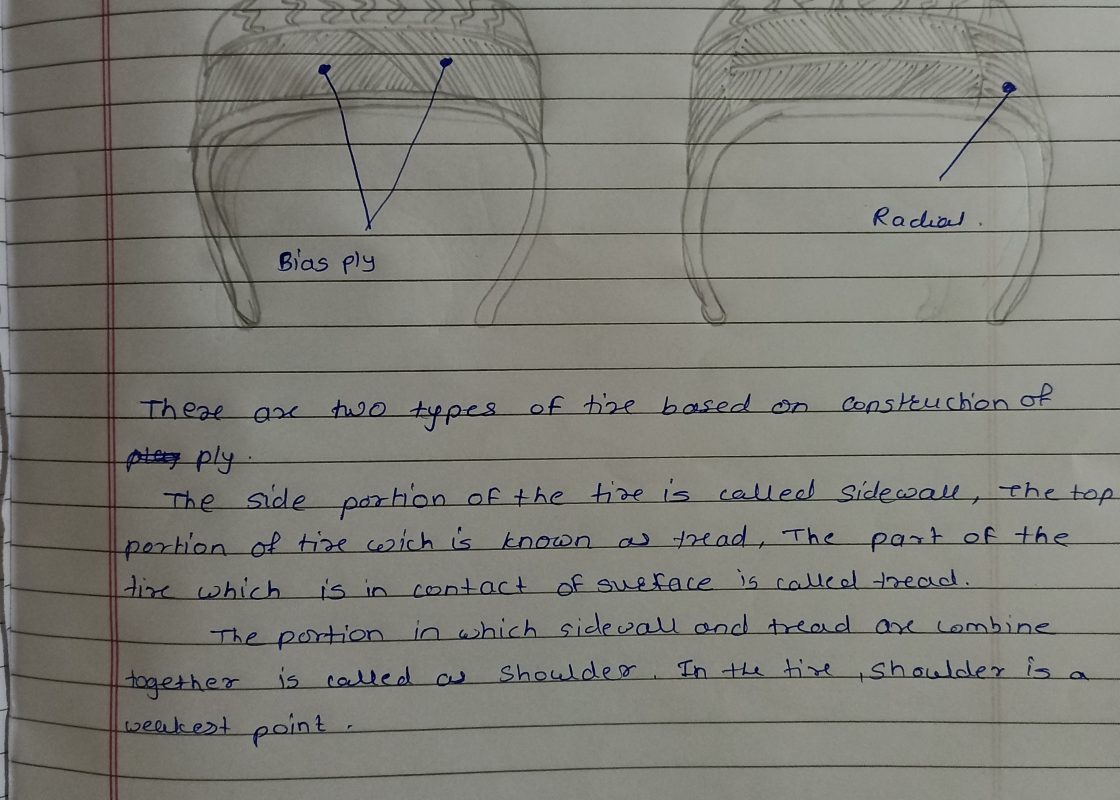 Bias ply
Radial.
There are two types of tire based on construction of
ply.
The side portion of the tire is called sidewall, The top
portion of tire wich is known as tread, The part of the
tire which is in contact of surface is called tread.
The portion in which sidewall and tread are combine
together is called as shoulder. In the tire, shoulder is a
weakest point.